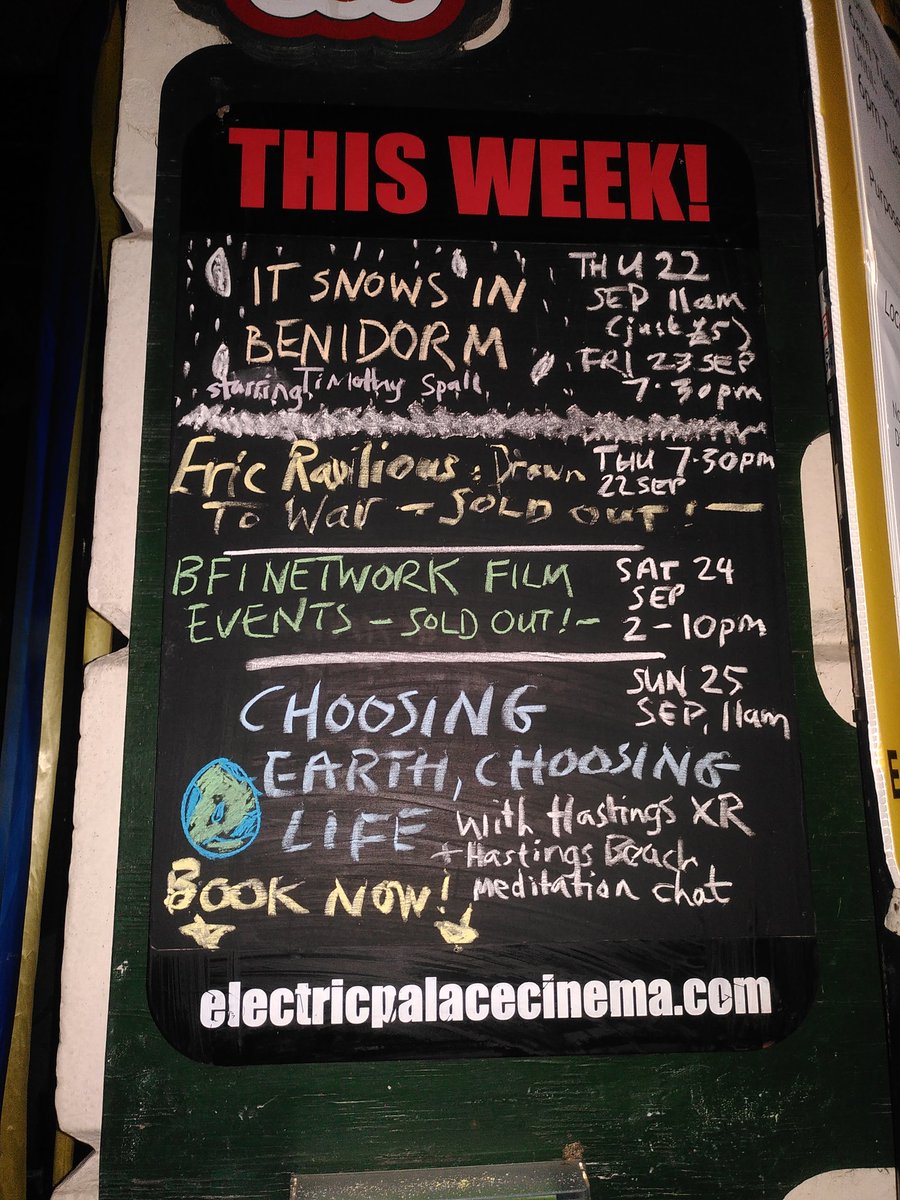 THIS WEEK!
IT SNOWS IN
BENIDORM
starring Timothy Spall
THU 22
SEP 11am
(just £5)
FRI 23 SEP
7.30pm
Eric Ravilious: Drawn
To War - SOLD OUT! -
THU 7.30pm
22 SEP
BFI NETWORK FILM
EVENTS - SOLD OUT! -
SAT 24
SEP
2-10pm
CHOOSING
EARTH, CHOOSING
LIFE
SUN 25
SEP, 11am
with Hastings XR
+ Hastings Beach
meditation chat
BOOK NOW!
electricpalacecinema.com